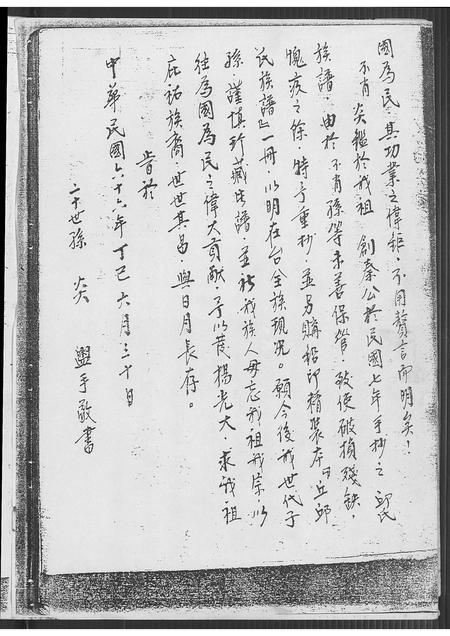 國為民，其功業之偉鉅，不用贅言而明矣！
不肖炎鑑於我祖創秦公於民國七年手抄之邱氏
族譜，由於不肖孫等未善保管，致使破損殘缺，
愧疚之餘，特予重抄，並另購鉛印精裝本『丘邱
氏族譜』一冊，以明在台全族現况。願今後我世代子
孫，謹慎珍藏此譜，並祈我族人毋忘我祖我宗，以
往為國為民之偉大貢献，予以發揚光大，求我祖
庇祐族裔，世世其昌，與日月長存。
旹於
中華民國六十六年丁巳六月三十日
二十世孫 炎 盥手敬書